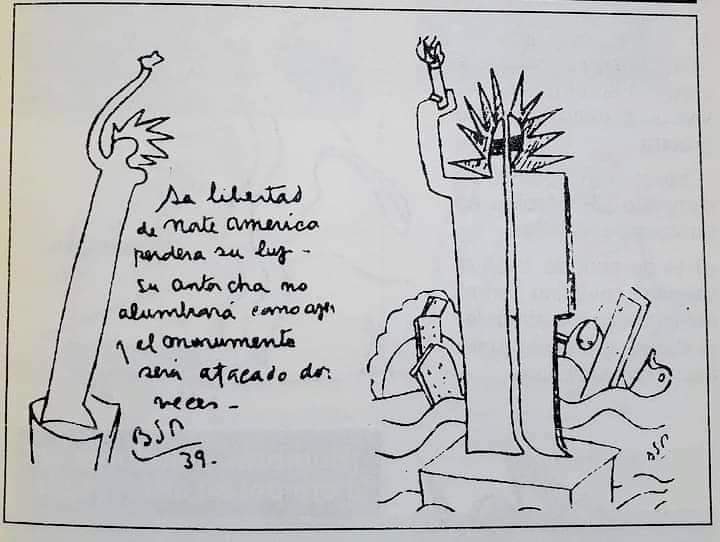 La libertad
de Norte America
perdera su luz -
Su antorcha no
alumbrará como ayer
y el monumento
será atacado dos
veces -
BSP
39.
BSP